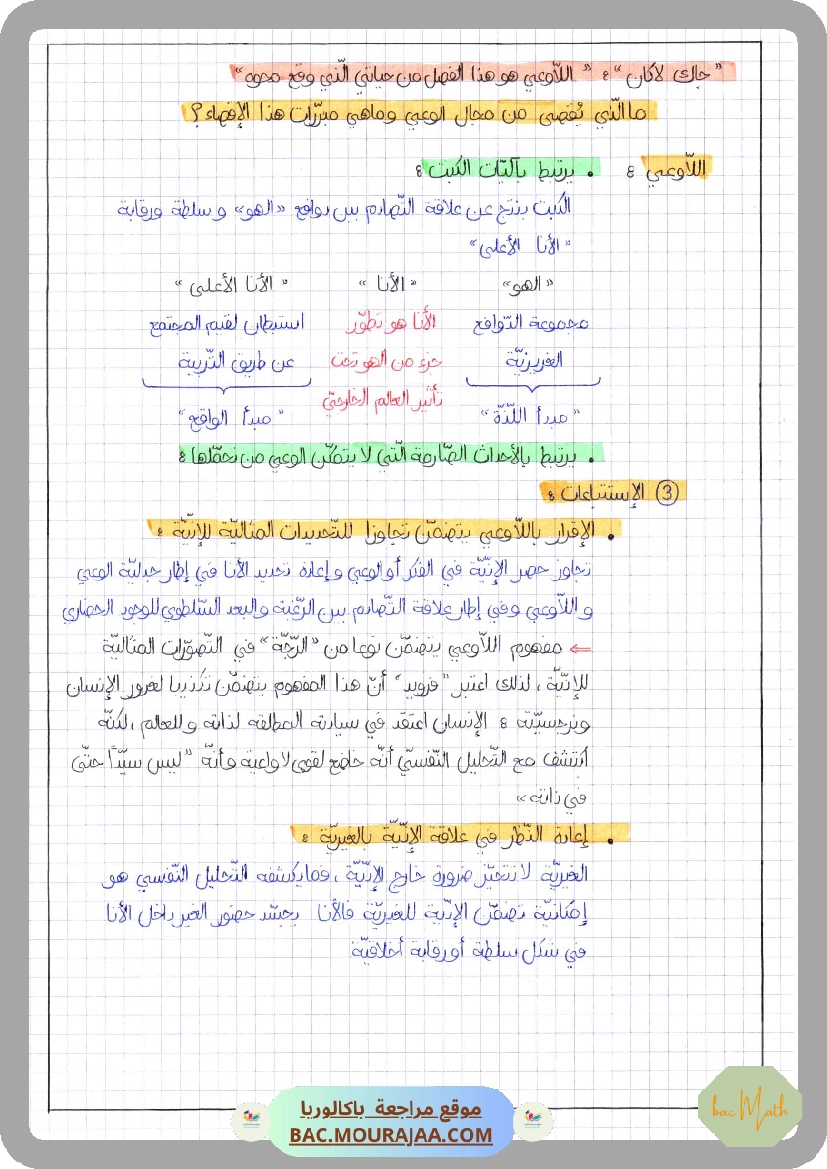 "جاك لاكان": "اللاّوعي هو هذا الفصل من حياتي الّتي وقع محوه"
ما الّتي يُقصى من مجال الوعي وماهي مبرّرات هذا الإقصاء؟
اللاّوعي : • يرتبط بآليّات الكبت :
الكبت ينتج عن علاقة التّصادم بين دوافع «الهو» وسلطة ورقابة
«الأنا الأعلى»
«الهو» «الأنا» «الأنا الأعلى»
مجموعة الدّوافع الأنا هو تطوّر استبطان لقيم المجتمع
الغريزيّة جزء من الهو تحت عن طريق التّربية
تأثير العالم الخارجيّ
"مبدأ اللّذّة" "مبدأ الواقع"
• يرتبط بالأحداث الصّارمة الّتي لا يتمكّن الوعي من تحمّلها :
③ الإستتباعات :
• الإقرار باللاّوعي يتضمّن تجاوزا للتّحديدات المثاليّة للإنيّة :
تجاوز حصر الإنيّة في الفكر أو الوعي وإعادة تحديد الأنا في إطار جدليّة الوعي
واللاّوعي وفي إطار علاقة التّصادم بين الرّغبة والبعد السّلطوي للوجود الحضاري
⇐ مفهوم اللاّوعي يتضمّن نوعا من «الرّجّة» في التّصوّرات المثاليّة
للإنيّة، لذلك اعتبر "فرويد" أنّ هذا المفهوم يتضمّن تكذيبا لغرور الإنسان
ونرجسيّته : الإنسان اعتقد في سيادته المطلقة لذاته وللعالم، لكنّه
اكتشف مع التّحليل النّفسيّ أنّه خاضع لقوى لاواعية وأنّه "ليس سيّدًا حتّى
في ذاته"
• إعادة النّظر في علاقة الإنيّة بالغيريّة :
الغيريّة لا تتحيّز ضرورة خارج الإنيّة، فما يكشفه التّحليل النّفسي هو
إمكانيّة تضمّن الإنيّة للغيريّة فالأنا يجسّد حضور الغير داخل الأنا
في شكل سلطة أو رقابة أخلاقيّة
موقع مراجعة باكالوريا
BAC.MOURAJAA.COM
bac Math